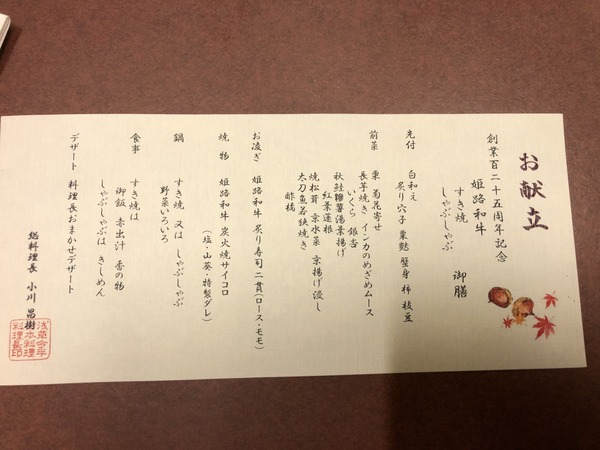 お献立
創業百二十五周年記念
姫路和牛
すき焼
しゃぶしゃぶ
御膳
先付 白和え
炙り穴子 粟麩 蟹身 柿 枝豆
前菜 栗 菊花寄せ
長芋焼き インカのめざめムース
いくら 銀杏
秋鮭 湯葉揚げ
紅葉蓮根
焼松茸 京水菜 京揚げ浸し
太刀魚若狭焼き
酢橘
お凌ぎ 姫路和牛 炙り寿司二貫(ロース・モモ)
焼物 姫路和牛 炭火焼サイコロ
(塩・山葵・特製ダレ)
鍋 すき焼 又は しゃぶしゃぶ
野菜いろいろ
食事 すき焼は
御飯 赤出汁 香の物
しゃぶしゃぶは きしめん
デザート 料理長おまかせデザート
総料理長 小川 昌樹
浅草今半
日本料理
料理長印